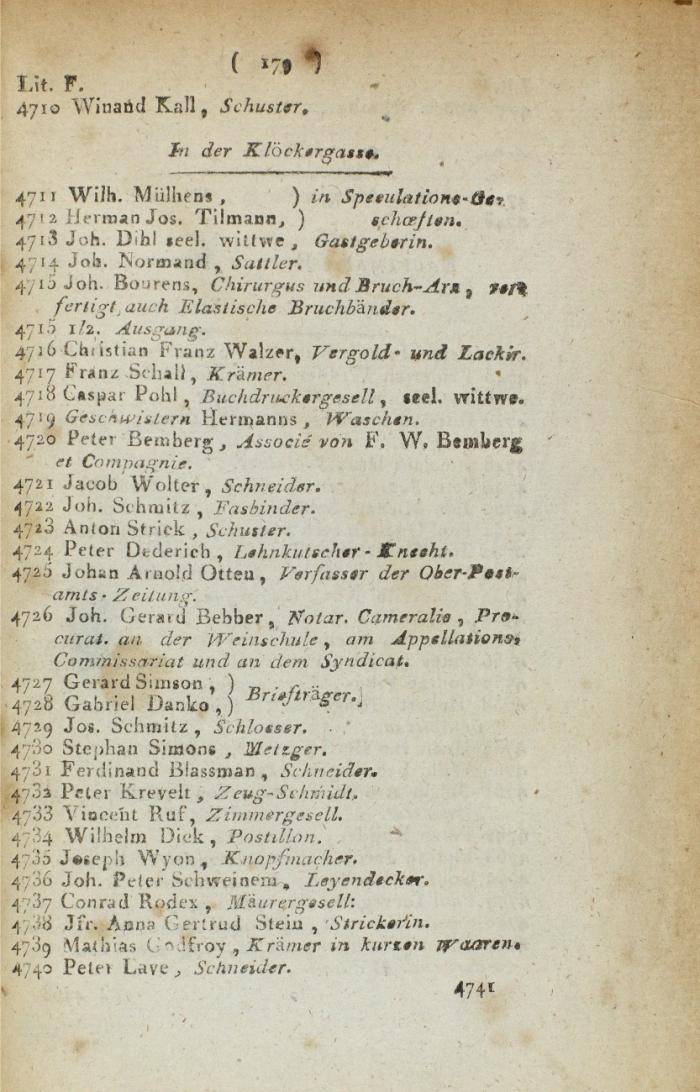 ( 179 )
Lit. F.
4710 Winand Kall, Schuster.
In der Klöckergasse.
4711 Wilh. Mülhens, ) in Speeulations-Ge-
4712 Herman Jos. Tilmann, ) schæften.
4713 Joh. Dihl seel. wittwe, Gastgeberin.
4714 Joh. Normand, Sattler.
4715 Joh. Bourens, Chirurgus und Bruch-Arz, ver-
fertigt auch Elastische Bruchbänder.
4715 1/2. Ausgang.
4716 Christian Franz Walzer, Vergold- und Lackir.
4717 Franz Schall, Krämer.
4718 Caspar Pohl, Buchdruckergesell, seel. wittwe.
4719 Geschwistern Hermanns, Waschen.
4720 Peter Bemberg, Associé von F. W. Bemberg
et Compagnie.
4721 Jacob Wolter, Schneider.
4722 Joh. Schmitz, Fasbinder.
4723 Anton Strick, Schuster.
4724 Peter Dederich, Lehnkutscher-Knecht.
4725 Johan Arnold Otten, Verfasser der Ober-Post-
amts-Zeitung.
4726 Joh. Gerard Bebber, Notar. Cameralis, Pro-
curat. an der Weinschule, am Appellations-
Commissariat und an dem Syndicat.
4727 Gerard Simson, )
4728 Gabriel Danko, ) Briefträger.
4729 Jos. Schmitz, Schlosser.
4730 Stephan Simons, Metzger.
4731 Ferdinand Blassman, Schneider.
4732 Peter Krevelt, Zeug-Schmidt.
4733 Vincent Ruf, Zimmergesell.
4734 Wilhelm Dick, Postillon.
4735 Joseph Wyon, Knopfmacher.
4736 Joh. Peter Schweinem, Leyendecker.
4737 Conrad Rodex, Mäurergesell:
4738 Jfr. Anna Gertrud Stein, Strickerin.
4739 Mathias Godfroy, Krämer in kurzen Waaren.
4740 Peter Lave, Schneider.
4741